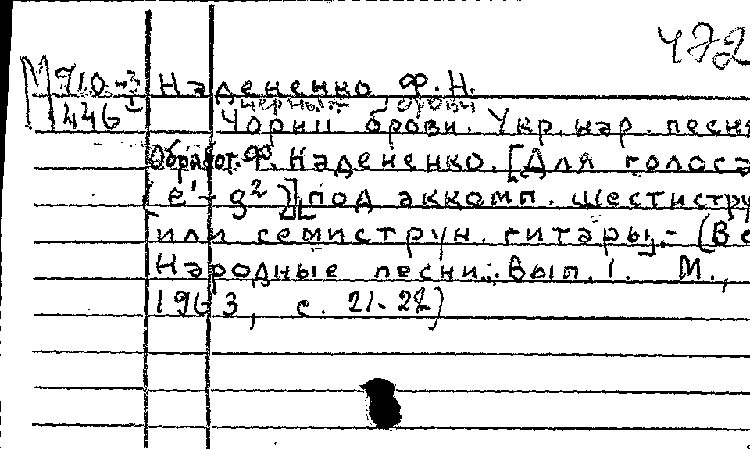 472
М 910-3 Надененко Ф. Н.
446 черные брови
Чорнii брови. Укр. нар. песня
Обработ. Ф. Надененко. [Для голоса
(e¹-g²)] [под аккомп. шестистру
или семиструн. гитары]. - (В с
Народные песни. Вып. 1. М.,
1963, с. 21-22)